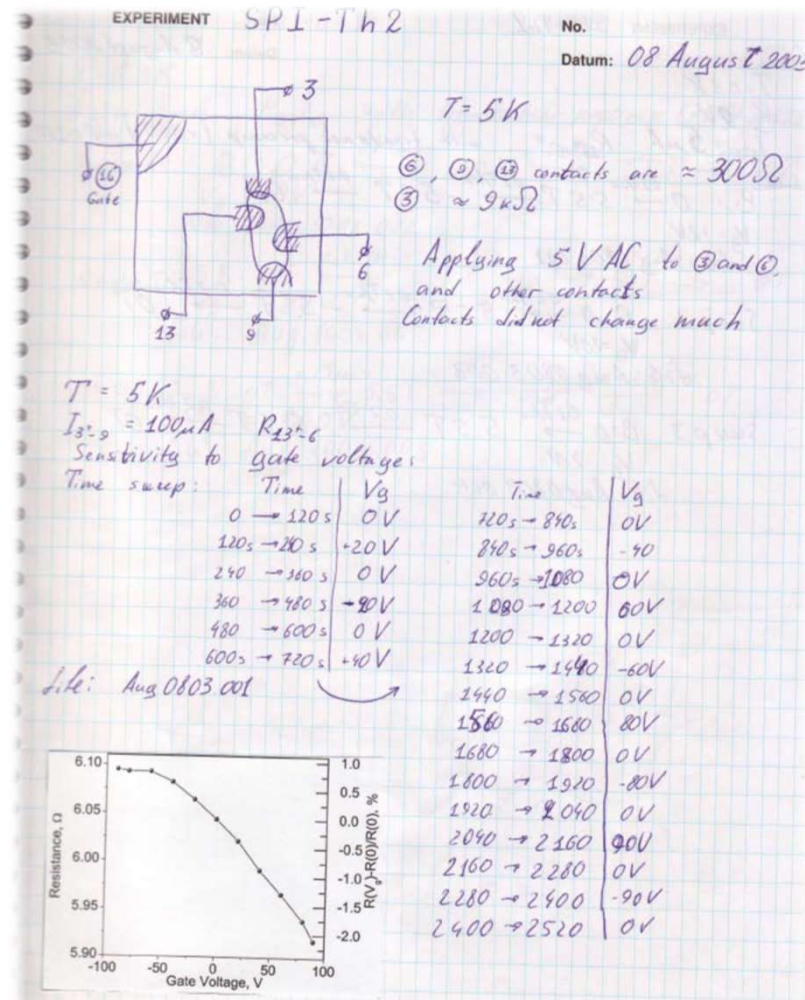 EXPERIMENT SPI-Th2
No.
Datum: 08 August 2003
3
T = 5K
16
Gate
6
13
9
⑥, ⑨, ⑬ contacts are ≈ 300Ω
③ ≈ 9kΩ
Applying 5V AC to ③ and ⑥,
and other contacts
Contacts did not change much
T = 5K
I3+-9 = 100μA R13+-6
Sensitivity to gate voltage:
Time sweep: Time Vg
0 → 120s 0V
120s → 240s +20V
240 → 360s 0V
360 → 480s -20V
480 → 600s 0V
600s → 720s +40V
file: Aug0803.001
Time Vg
720s → 840s 0V
840s → 960s -40
960s → 1080 0V
1080 → 1200 60V
1200 → 1320 0V
1320 → 1440 -60V
1440 → 1560 0V
1560 → 1680 80V
1680 → 1800 0V
1800 → 1920 -80V
1920 → 2040 0V
2040 → 2160 90V
2160 → 2280 0V
2280 → 2400 -90V
2400 → 2520 0V
6.10
6.05
6.00
5.95
5.90
Resistance, Ω
1.0
0.5
0.0
-0.5
-1.0
-1.5
-2.0
R(Vg)-R(0)/R(0), %
-100 -50 0 50 100
Gate Voltage, V